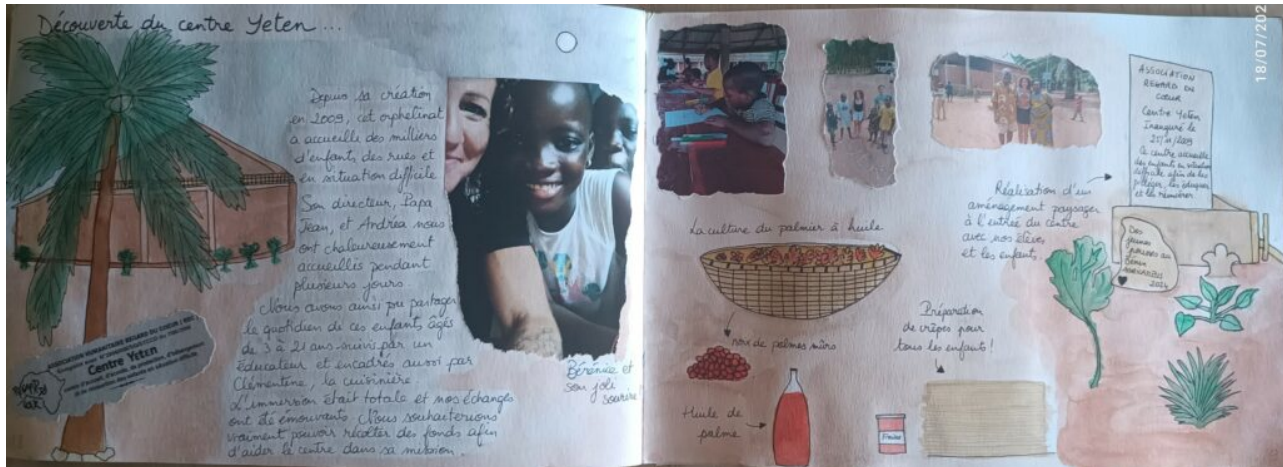 Découverte du centre Yeten ...
Depuis sa création
en 2009, cet orphelinat
a accueilli des milliers
d'enfants des rues et
en situation difficile
Son directeur, Papa
Jean, et Andréa nous
ont chaleureusement
accueillis pendant
plusieurs jours.
Nous avons ainsi pu partager
le quotidien de ces enfants âgés
de 3 à 21 ans suivi par un
éducateur et encadrés aussi par
Clémentine, la cuisinière.
L'immersion était totale et nos échanges
ont été émouvants. Nous souhaiterions
vraiment pouvoir récolter des fonds afin
d'aider le centre dans sa mission.
ASSOCIATION HUMANITAIRE REGARD DU COEUR
Centre Yeten
Bérénice et
son joli
sourire!
La culture du palmier à huile
noix de palmes mûrs
Huile de
palme
Préparation
de crêpes pour
tous les enfants!
Réalisation d'un
aménagement paysager
à l'entrée du centre
avec nos élèves
et les enfants.
ASSOCIATION
REGARD DU
COEUR
Centre Yeten
Inauguré le
21/11/2009
Ce centre accueille
des enfants en situation
difficile afin de les
protéger, les éduquer
et les réinsérer
Des
jeunes
pousses au
Bénin
2024
18/07/202